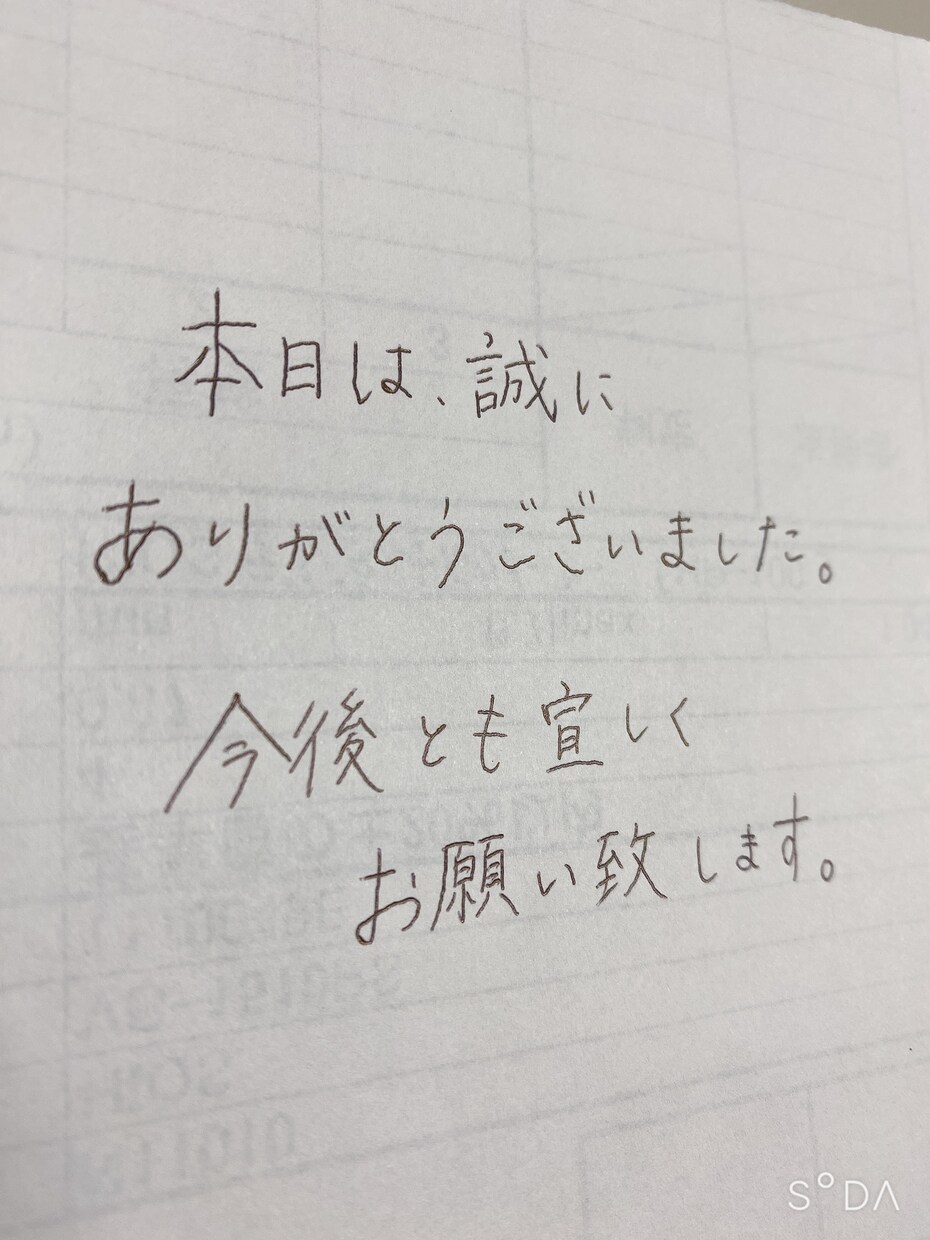 本日は、誠に
ありがとうございました。
今後とも宜しく
お願い致します。
SODA